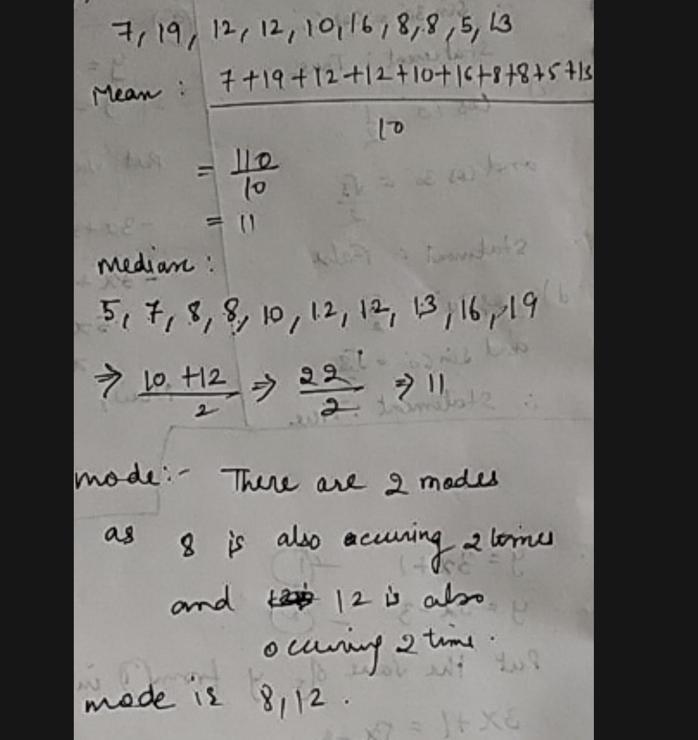 7, 19, 12, 12, 10, 16, 8, 8, 5, 13
Mean : 7+19+12+12+10+16+8+8+5+13
10
= 110
10
= 11
Median :
5, 7, 8, 8, 10, 12, 12, 13, 16, 19
⇒ 10+12 ⇒ 22 ⇒ 11
2 2
mode:- There are 2 modes
as 8 is also accuring 2 times
and 12 is also
occuring 2 time.
mode is 8,12.